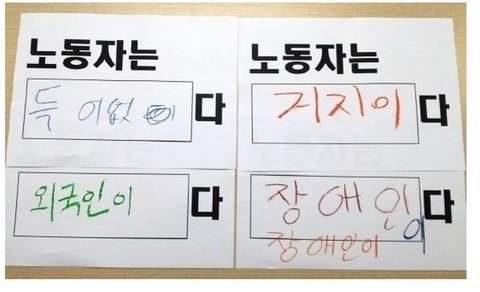 노동자는
득이없이다
외국인이다
노동자는
거지이다
장애인이다
장애인이